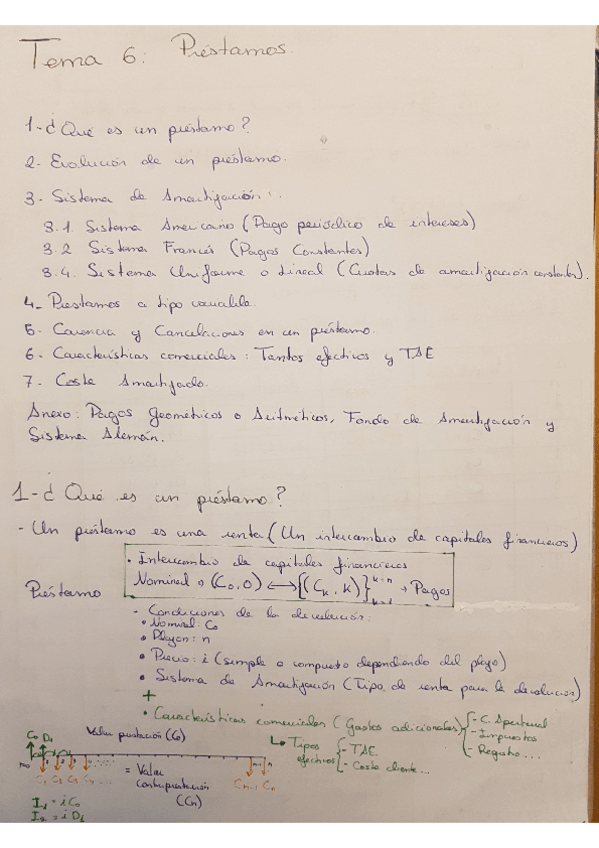 Tema 6: Préstamos.
1-¿Qué es un préstamo?
2- Evolución de un préstamo.
3- Sistema de Amortización:
3.1. Sistema Americano (Pago periódico de intereses)
3.2 Sistema Francés (Pagos Constantes)
3.4. Sistema Uniforme o Lineal (Cuotas de amortización constantes).
4- Prestamos a tipo variable.
5- Carencia y Cancelaciones en un préstamo.
6- Características comerciales: Tantos efectivos y TAE
7- Coste Amortizado.
Anexo: Pagos Geométricos o Aritméticos, Fondo de Amortización y
Sistema Alemán.
1-¿Qué es un préstamo?
- Un préstamo es una renta (Un intercambio de capitales financieros)
• Intercambio de capitales financieros
Nominal → (C₀,0) ⟷ {(Cₖ, k)}ᵏ⁼ⁿₖ₌₁ → Pagos
Préstamo
- Condiciones de la devolución:
• Nominal: C₀
• Plazo: n
• Precio: i (simple o compuesto dependiendo del plazo)
• Sistema de Amortización (Tipo de renta para la devolución)
+
• Características comerciales (Gastos adicionales) {- C. Apertura
- Impuestos
- Registro...
↳ Tipos efectivos {- TAE
- Coste cliente...
C₀ D₁
Valor prestación (C₀)
C₁ C₂ C₃ C₄ ....
= Valor
contraprestación
(Cn)
Cn-1 Cn
I₁ = i C₀
I₂ = i D₁